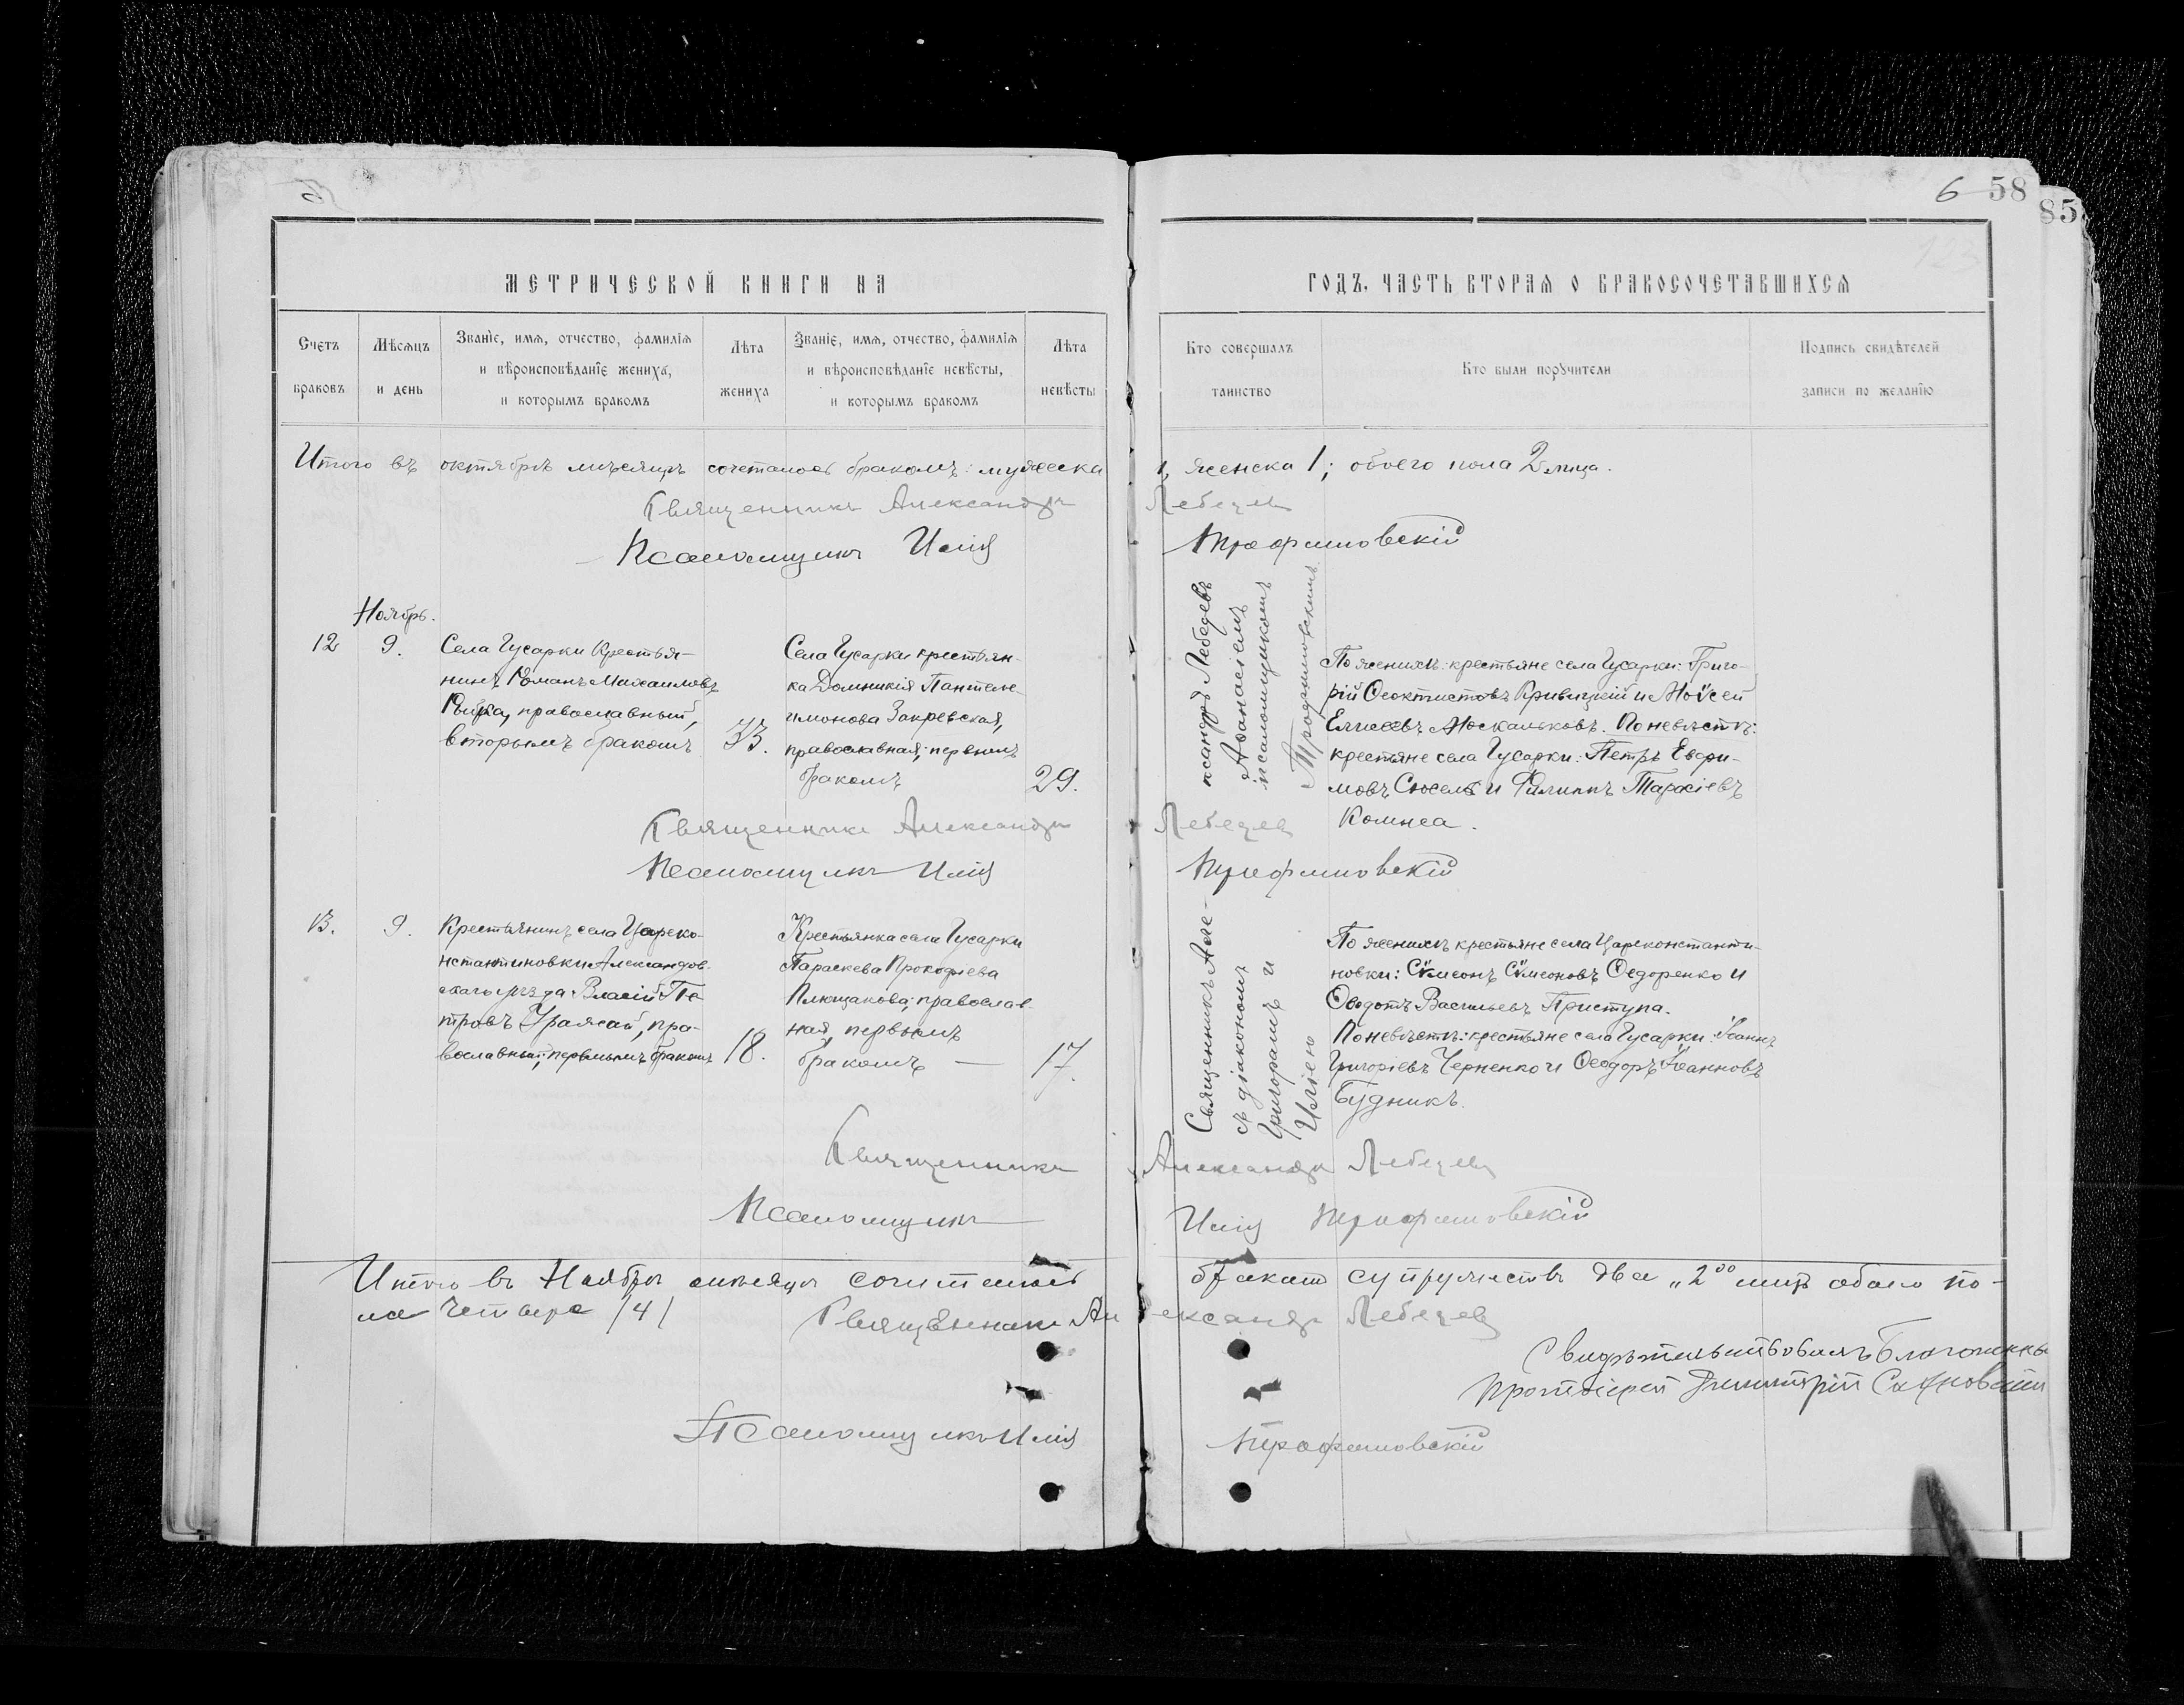 6 58
85
МЕТРИЧЕСКОЙ КНИГИ НА
ГОДЪ, ЧАСТЬ ВТОРАЯ О БРАКОСОЧЕТАВШИХСЯ
Счетъ браковъ
Мѣсяцъ и день
Званіе, имя, отчество, фамилія и вѣроисповѣданіе жениха, и которымъ бракомъ
Лѣта жениха
Званіе, имя, отчество, фамилія и вѣроисповѣданіе невѣсты, и которымъ бракомъ
Лѣта невѣсты
Кто совершалъ таинство
Кто были поручители
Подпись свидѣтелей записи по желанію
Итого въ октябрѣ мѣсяцѣ сочеталось бракомъ: мужеска 1, женска 1; обоего пола 2 лица.
Священникъ Александръ Лебедевъ
Псаломщикъ Илія Трофимовскій
Ноябрь.
12
9.
Села Гусарки Крестья-
нинъ Романъ Михаиловъ
православный,
вторымъ бракомъ
33.
Села Гусарки крестьян-
ка Домникія Пантеле-
имонова Закревская,
православная; первымъ
бракомъ
29.
По женихѣ: крестьяне села Гусарки: Григо-
рій Ѳеоктистовъ Кривицкій и Моѵсей
Елисеевъ Москальковъ. По невѣстѣ:
крестьяне села Гусарки: Петръ Евфи-
мовъ и Филиппъ Тарасіевъ
Комнеа.
Священникъ Александръ Лебедевъ
Псаломщикъ Илія Трофимовскій
13.
9.
Крестьянинъ села Цареко-
нстантиновки Александров-
скаго уѣзда Власій Пе-
тровъ Уражай, пра-
вославный; первымъ бракомъ
18.
Крестьянка села Гусарки
Параскева Прокофіева
Плющакова, православ-
ная, первымъ
бракомъ —
17.
Священникъ Але-
ксандръ Лебедевъ
съ діакономъ
Аѳанасіемъ
Григорашъ и
псаломщикомъ
Иліею
Трофимовскимъ.
По женихѣ крестьяне села Цареконстанти-
новки: Сѵмеонъ Сѵмеоновъ Ѳедоренко и
Ѳеодотъ Васильевъ Приступа.
По невѣстѣ: крестьяне села Гусарки: Іоаннъ
Григоріевъ Черненко и Ѳеодоръ Іоанновъ
Будникъ.
Священникъ Александръ Лебедевъ
Псаломщикъ Илія Трофимовскій
Итого въ Ноябрѣ мѣсяцѣ сочеталось бракомъ супружествъ два „2" лицъ обоего по-
ла четыре /4/
Священникъ Александръ Лебедевъ
Свидѣтельствовалъ Благочинный
Протоіерей Димитрій
Псаломщикъ Илія Трофимовскій